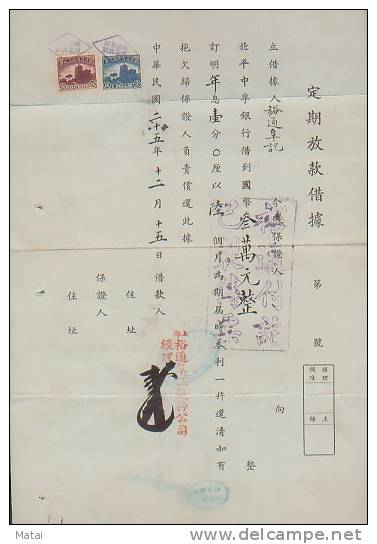 定期放款借據
第 號
經理
襄理
主任
立借據人裕通阜記 今憑保證人 向
北平中孚銀行借到國幣叁萬元整 整
訂明年息壹分0厘以陸個月為期屆時本利一并還清如有
拖欠歸保證人負責償還此據
中華民國二十五年十二月十五日
借款人
住址
保證人
住址
上海
裕通
公司
經理
Matai
delcampe.net